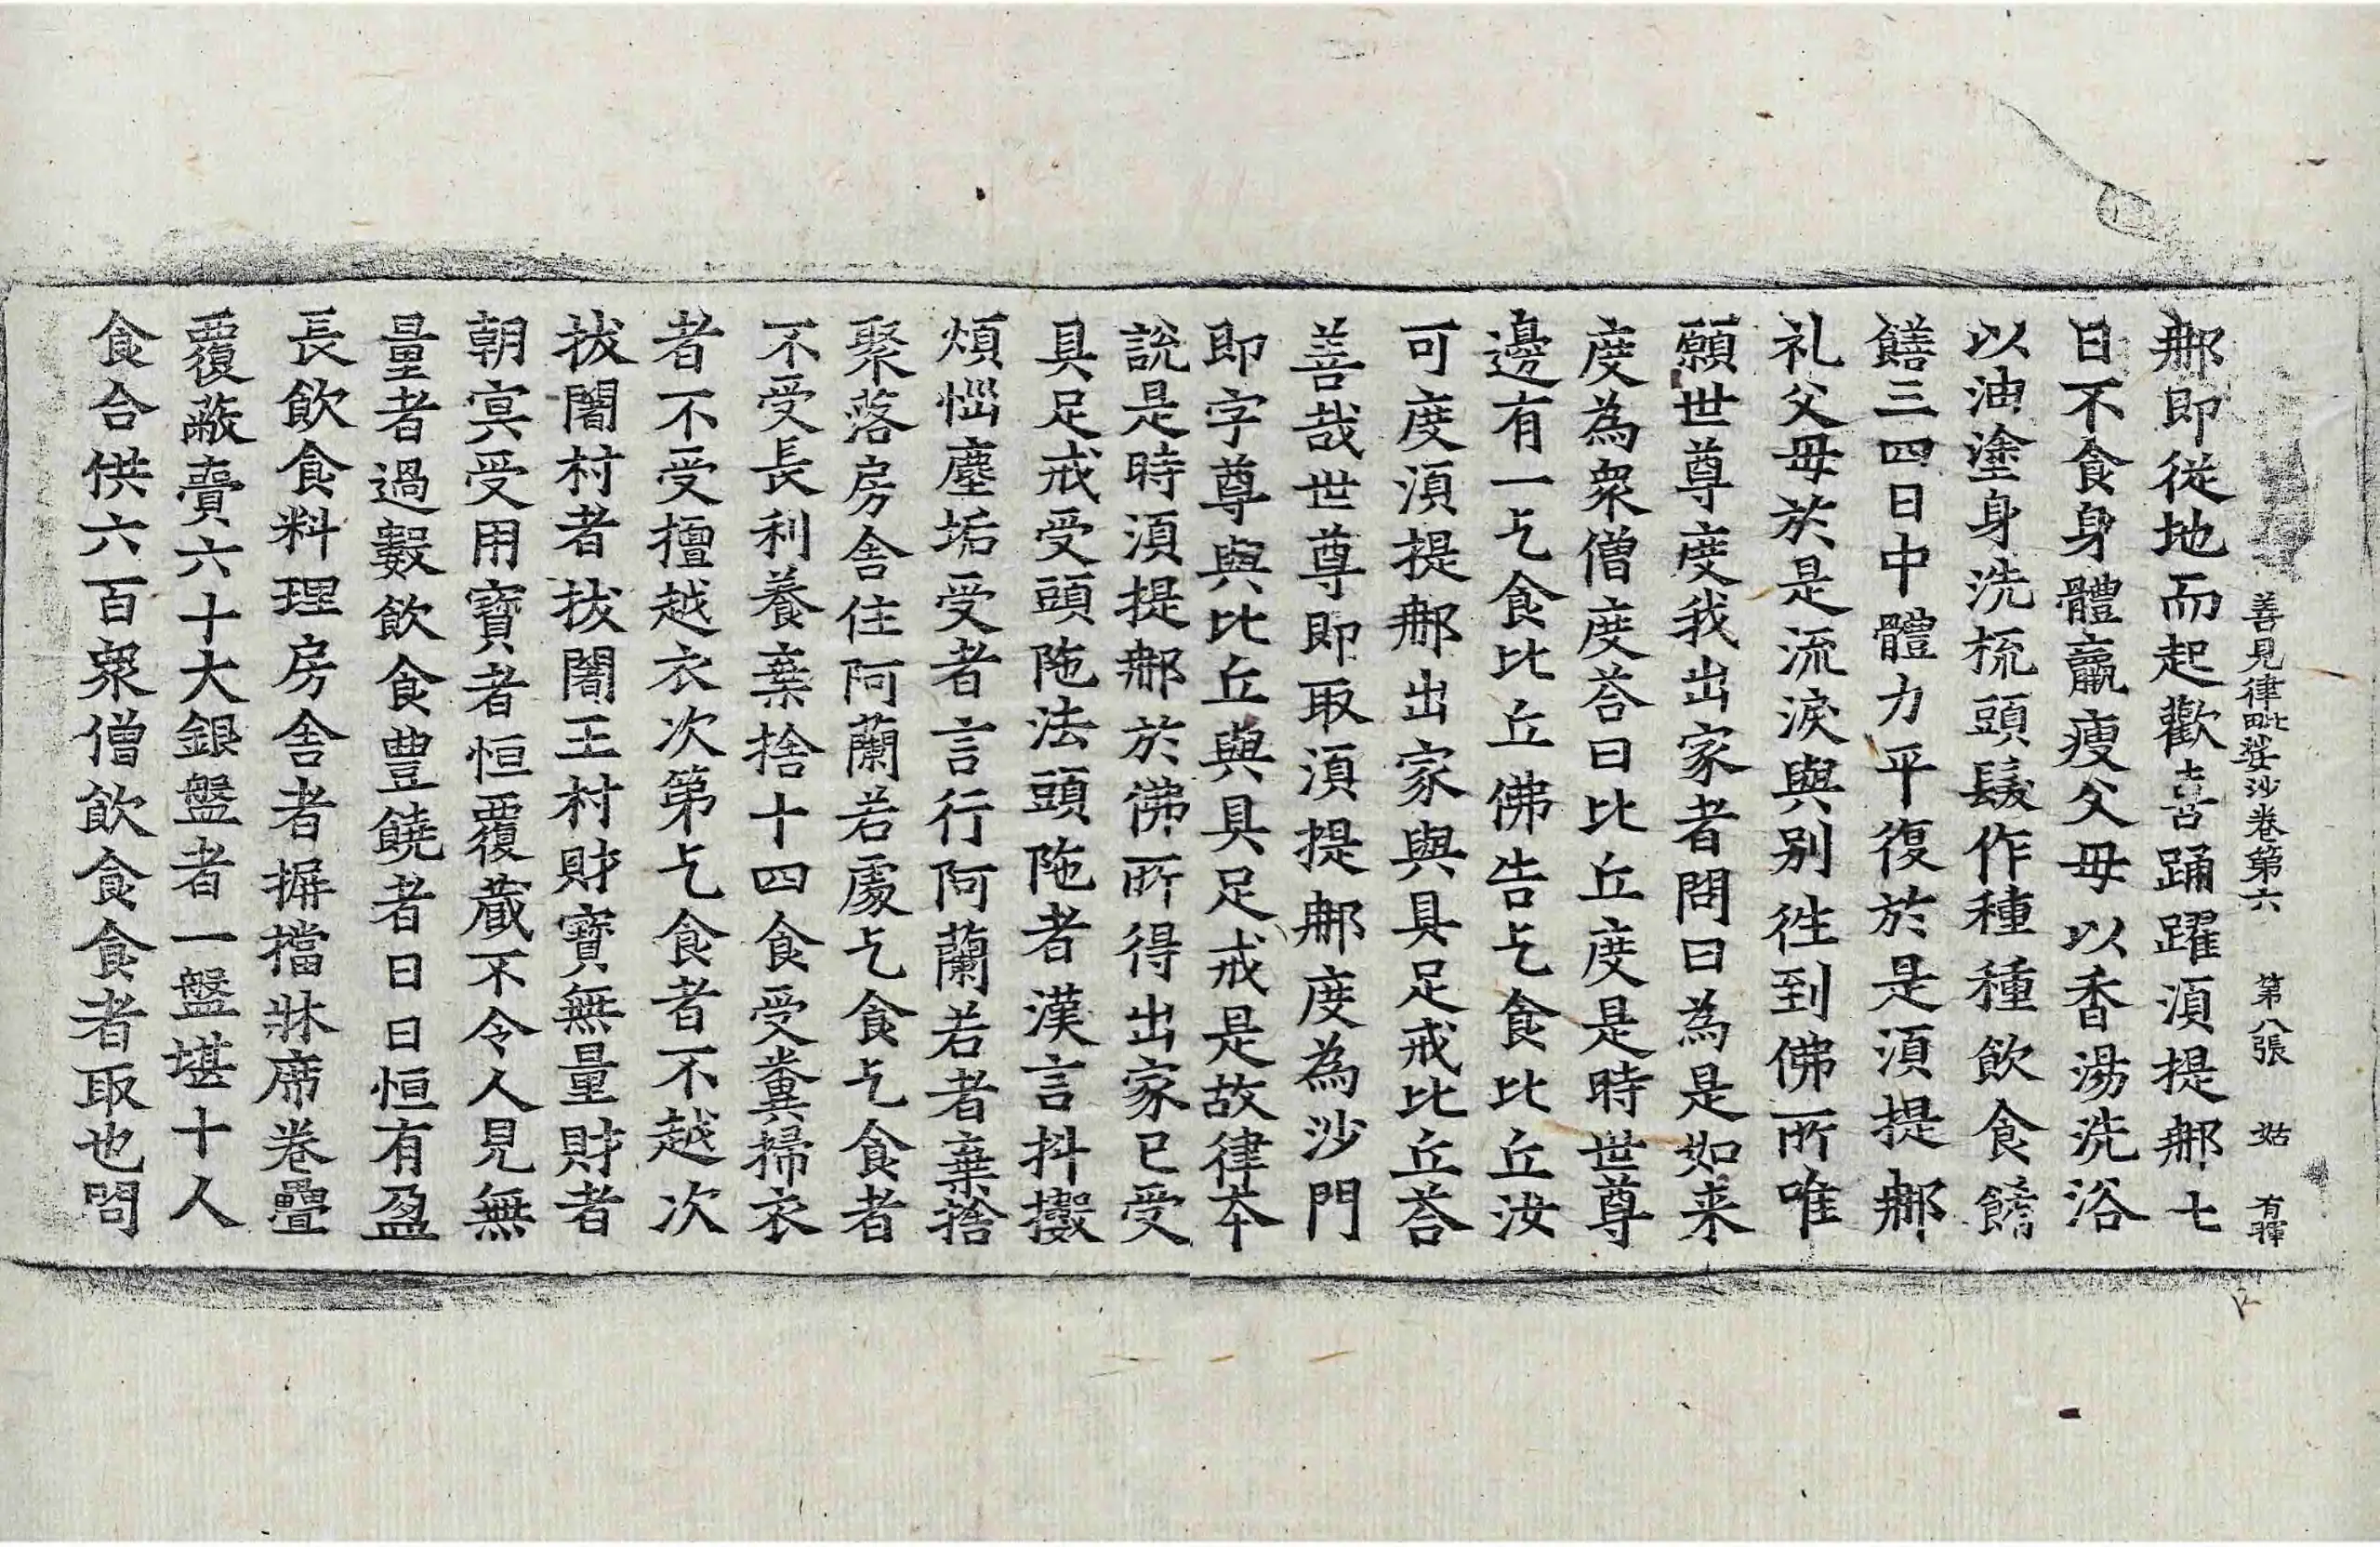 善見律毗婆沙卷第六 第八張 姑 有暉
那即從地而起歡喜踊躍湏提那七
日不食身體羸瘦父母以香湯洗浴
以油塗身洗梳頭髮作種種飲食餚
饍三四日中體力平復於是湏提那
礼父母於是流淚與別徃到佛所唯
願世尊度我出家者問曰為是如来
度為衆僧度荅曰比丘度是時世尊
邊有一乞食比丘佛告乞食比丘汝
可度湏提那出家與具足戒比丘荅
善哉世尊即取湏提那度為沙門
即字尊與比丘與具足戒是故律夲
說是時湏提那於佛所得出家已受
具足戒受頭陁法頭陁者漢言抖擻
煩惱塵垢受者言行阿蘭若者棄捨
聚落房舍住阿蘭若處乞食乞食者
不受長利養棄捨十四食受糞掃衣
者不受擅越衣次第乞食者不越次
拔闍村者拔闍王村財寶無量財者
朝㝠受用寶者恒覆蔵不令人見無
量者過數飲食豊饒者日日恒有盈
長飲食料理房舍者摒擋牀席卷疊
覆蔽賷六十大銀盤者一盤堪十人
食合供六百衆僧飲食食者取也問